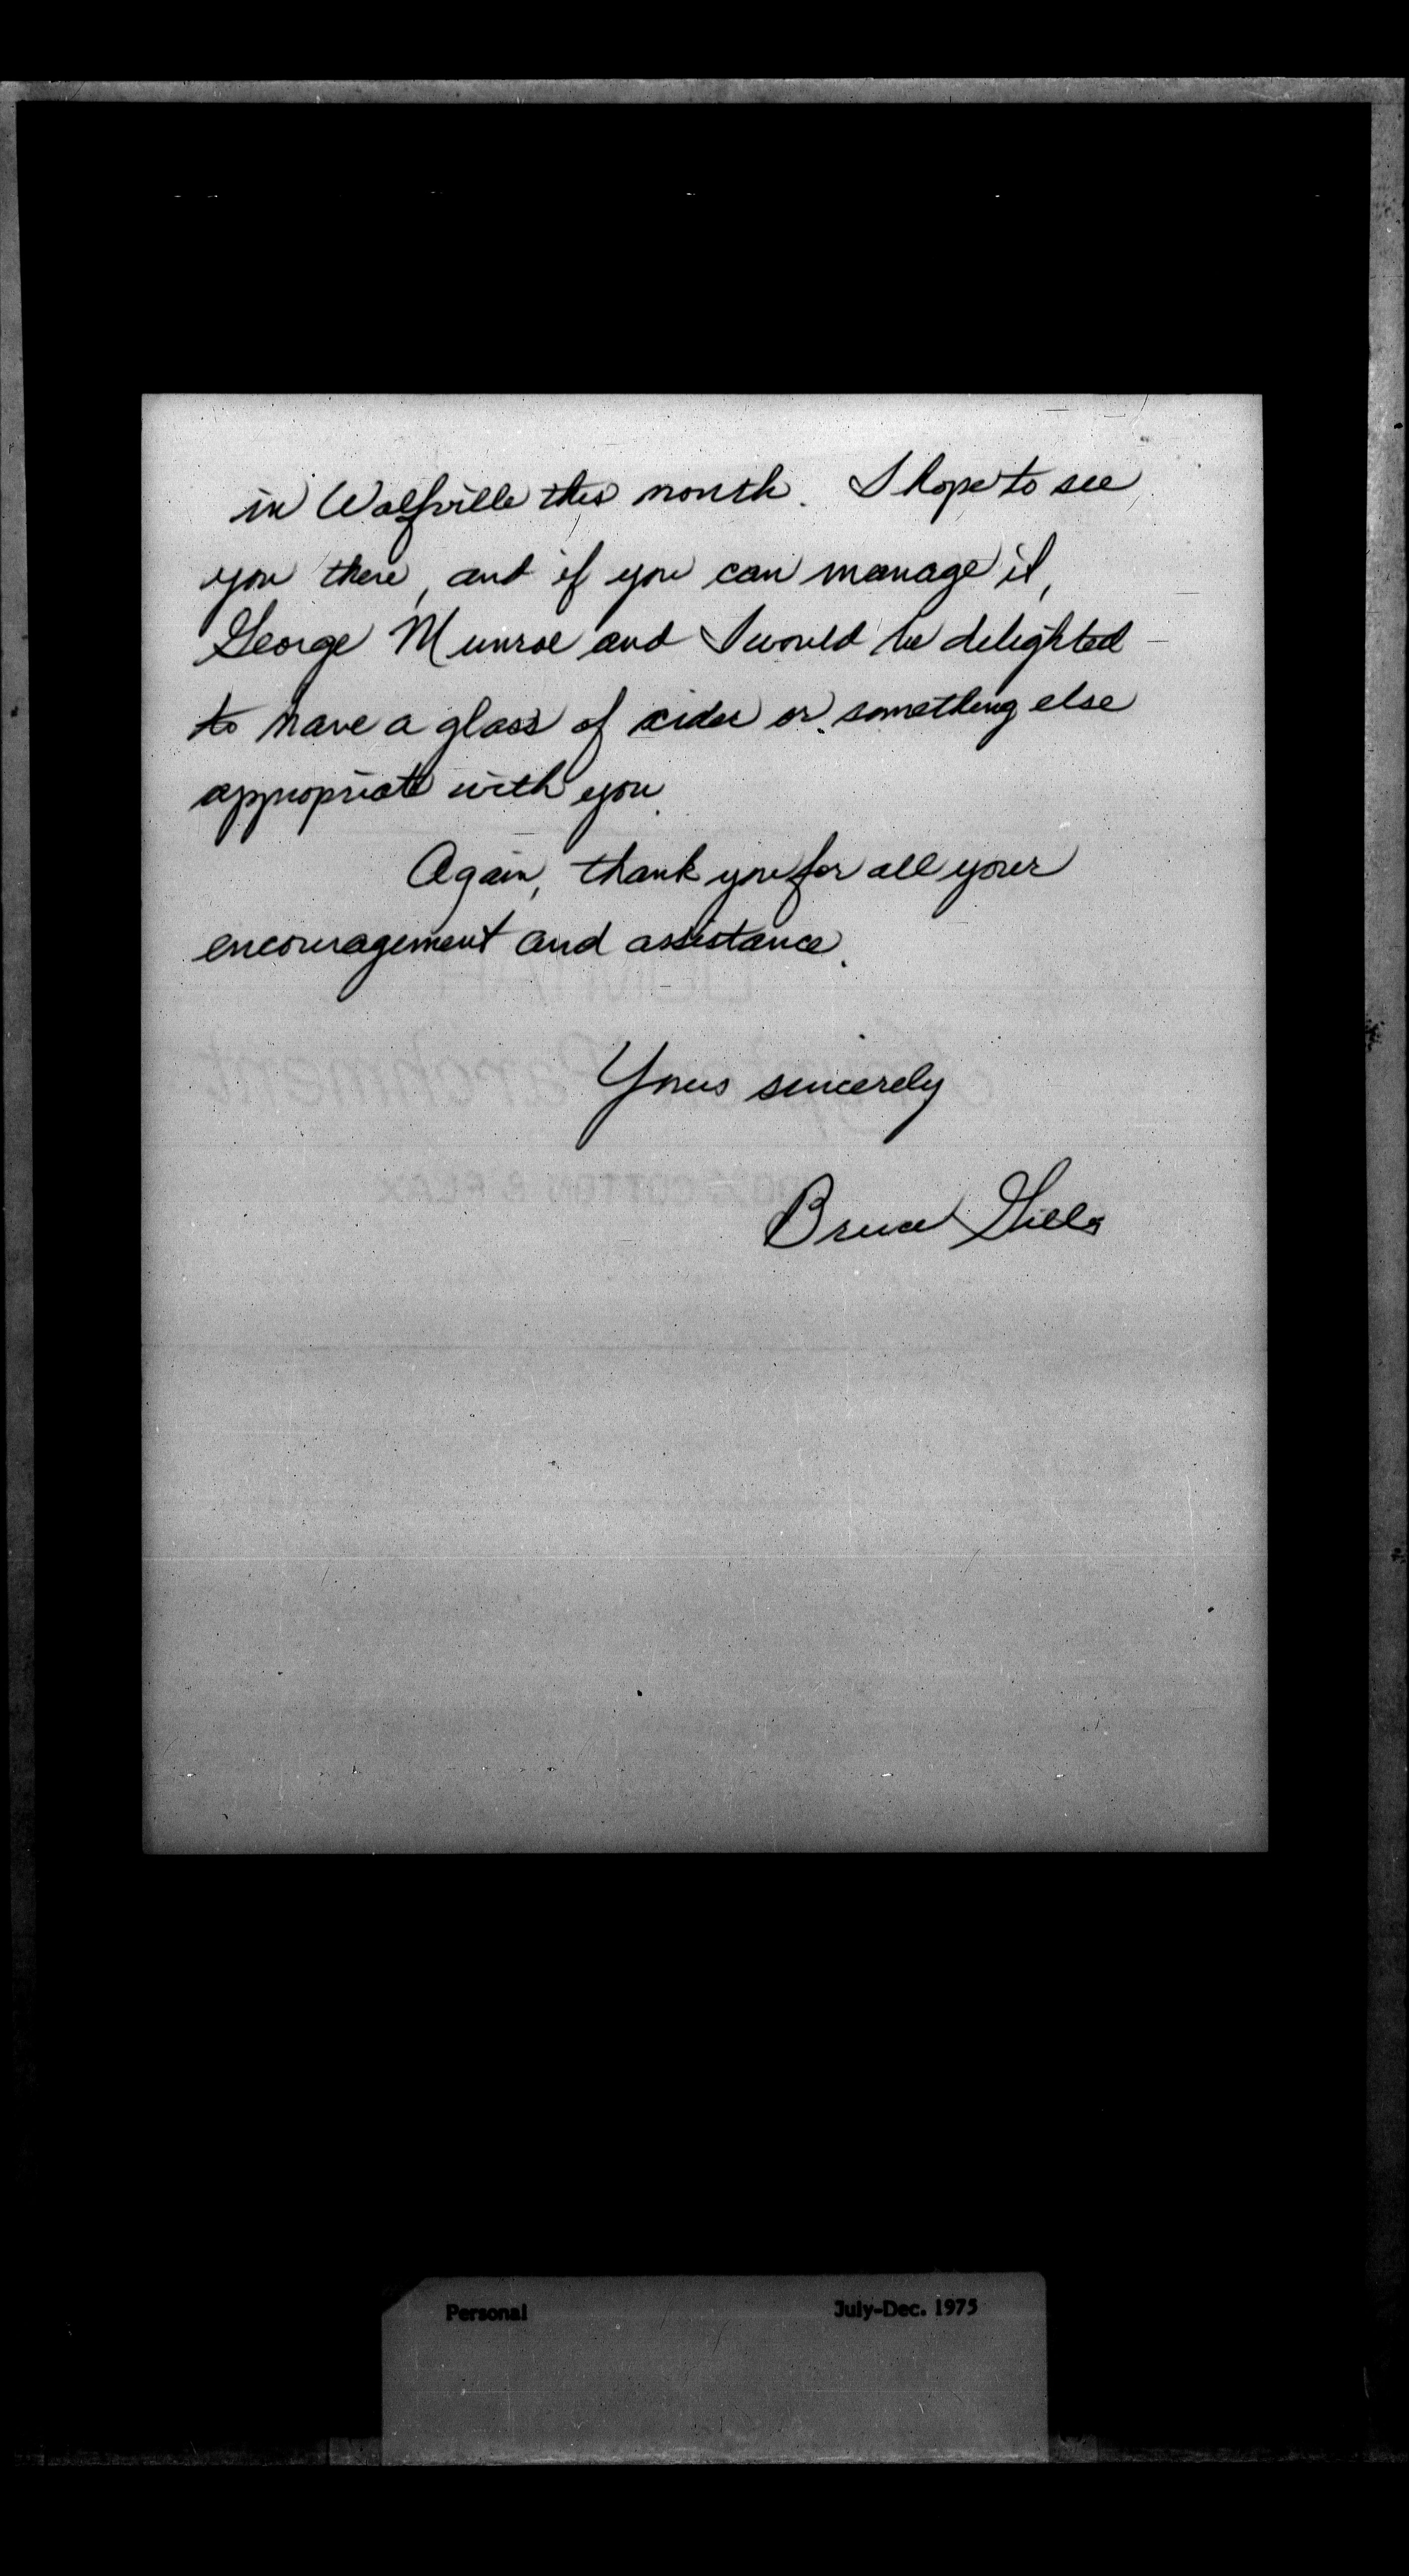 in Wolfville this month. I hope to see
you there, and if you can manage it,
George Munroe and I would be delighted
to have a glass of cider or something else
appropriate with you.
Again, thank you for all your
encouragement and assistance.
Yours sincerely
Bruce Gillis
Parchment
100% COTTON & FLAX
Personal July-Dec. 1975